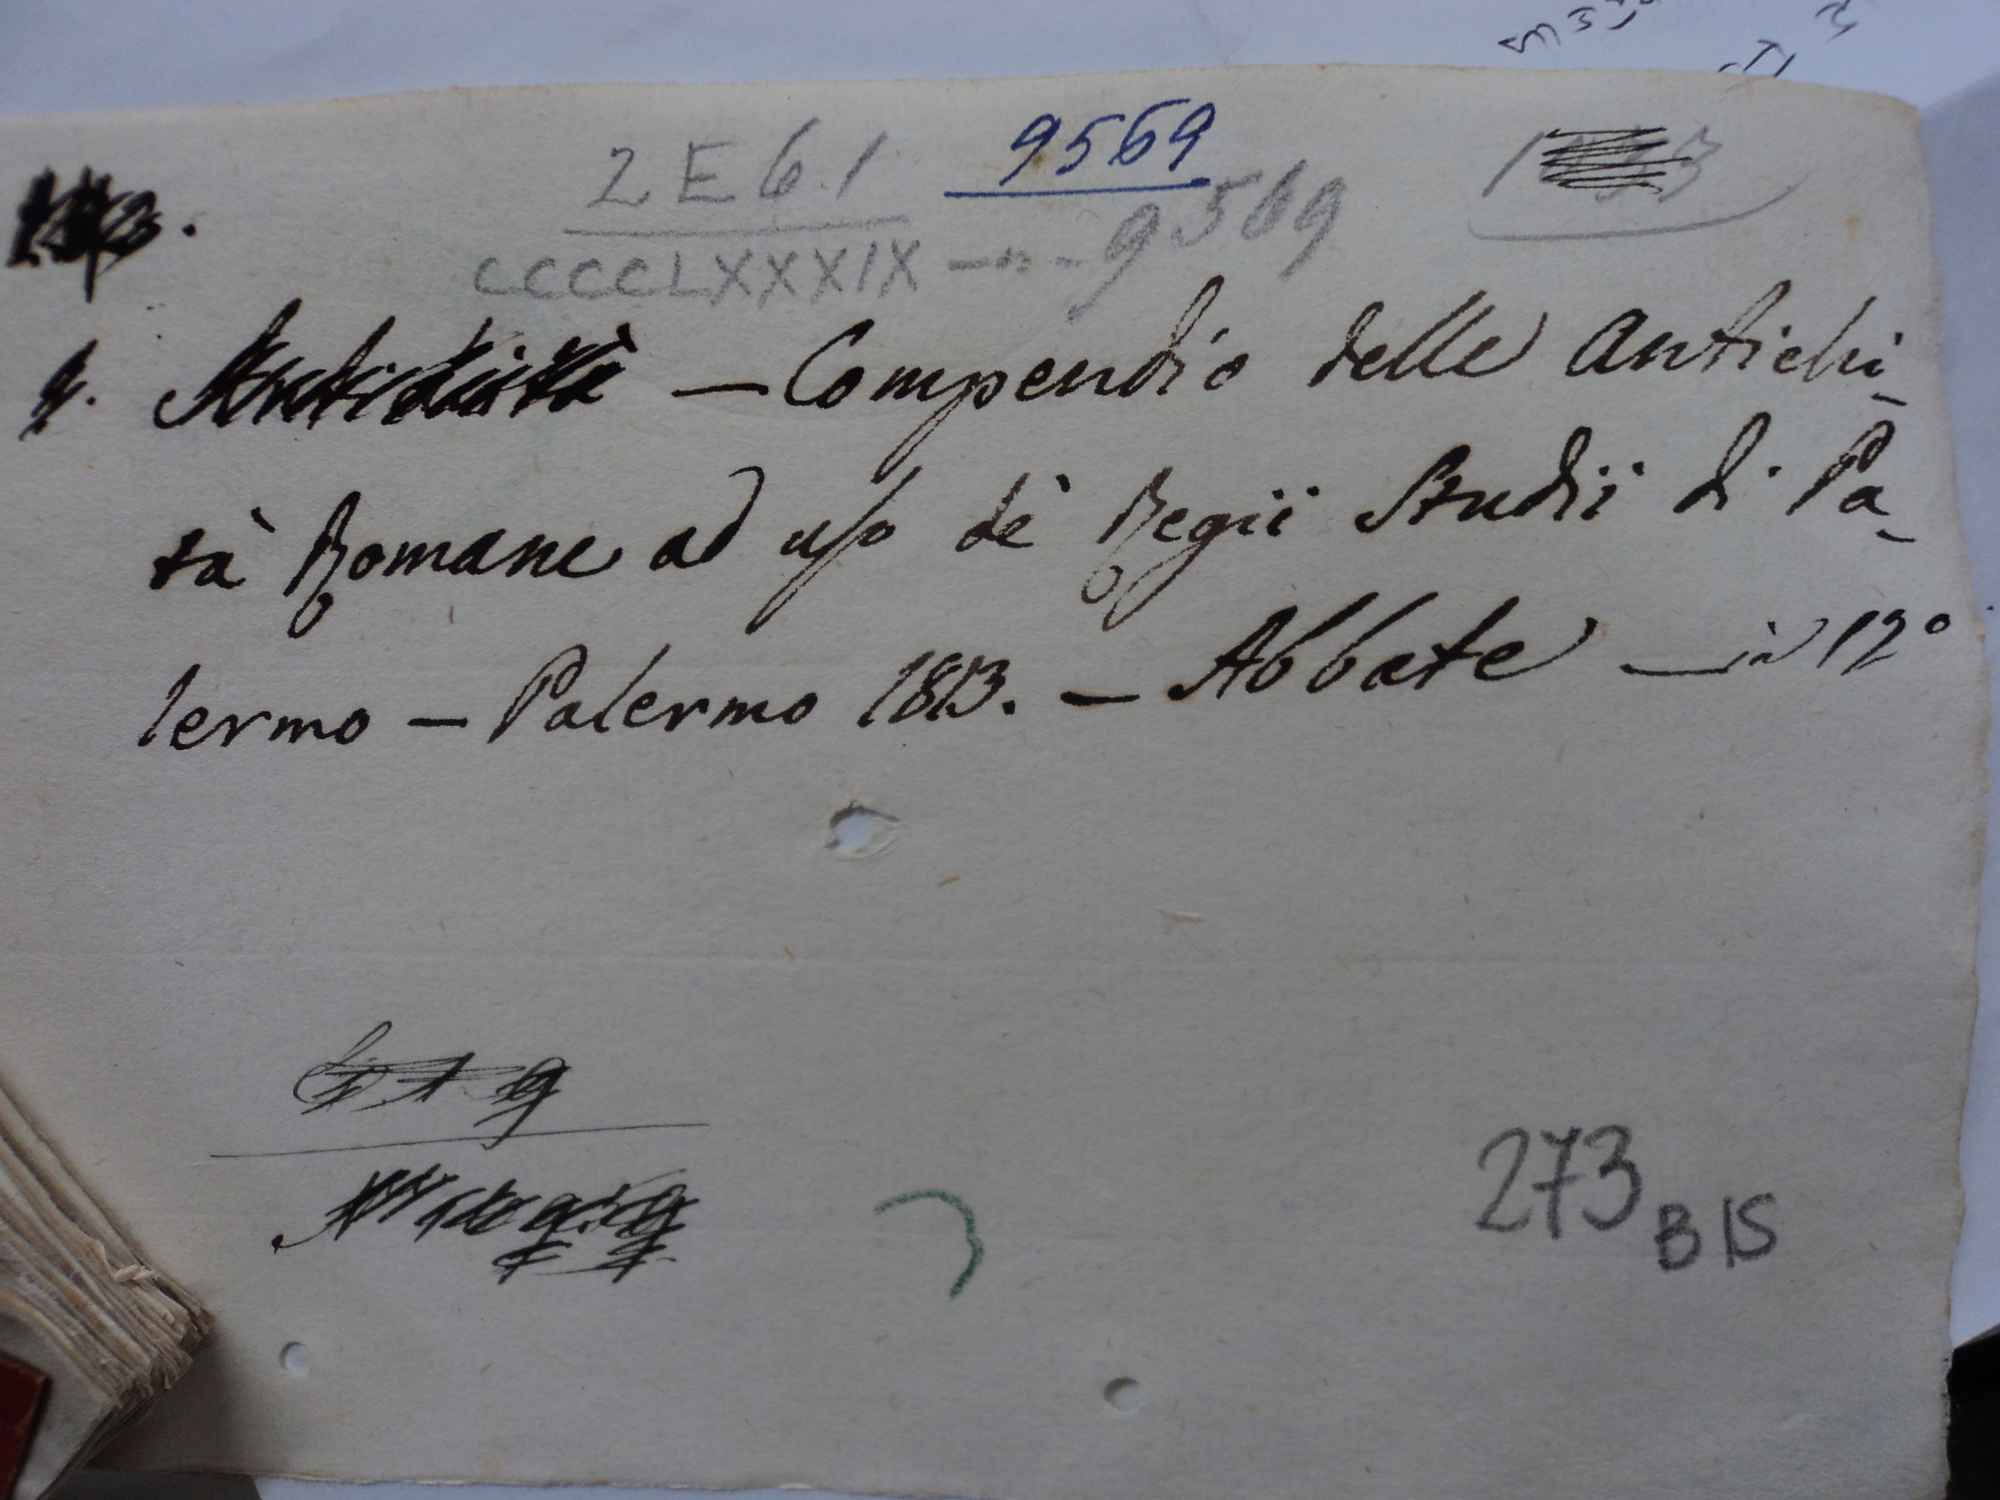 2 E 6.1 9569
CCCCLXXXIX — n. 9569
— Compendio delle Antichi-
tà Romane ad uso de' Regii Studii di Pa-
lermo — Palermo 1813. — Abbate — in 12°
273 BIS